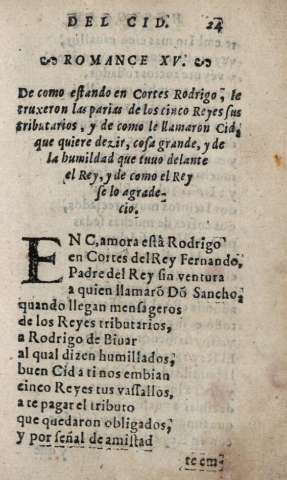 DEL CID. 24
ROMANCE XV.
De como eſtando en Cortes Rodrigo, le
truxeron las parias de los cinco Reyes sus
tributarios, y de como le llamaron Cid,
que quiere dezir, coſa grande, y de
la humildad que tuuo delante
el Rey, y de como el Rey
ſe lo agrade-
cio.
EN C,amora eſtà Rodrigo
en Cortes del Rey Fernando,
Padre del Rey ſin ventura
a quien llamarõ Dõ Sancho,
quando llegan menſageros
de los Reyes tributarios,
a Rodrigo de Biuar
al qual dizen humillados,
buen Cid a ti nos embian
cinco Reyes tus vaſſallos,
a te pagar el tributo
que quedaron obligados,
y por ſeñal de amiſtad
te em-